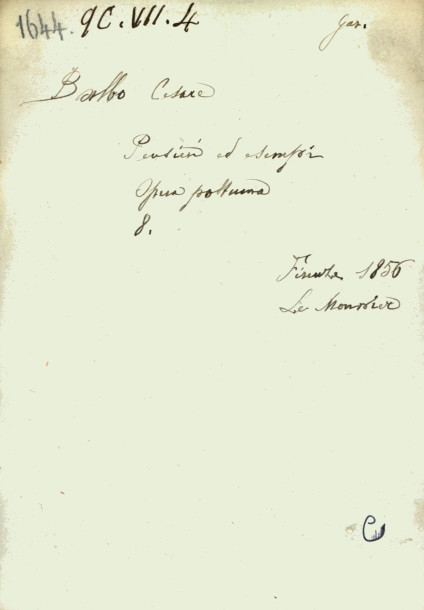 1644. 9C.VII.4
Gar.
Balbo Cesare
Pensieri ed esempi
Opera postuma
8.
Firenze 1856
Le Monnier